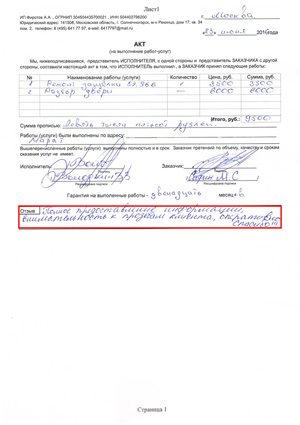 Лист1
г. Москва
ИП Фирстов А.А., ОГРНИП
Юридический адрес: 141508, Московская область, г. Солнечногорск,
пом. 2, телефон: 8 (495)
23 июня 2016года
АКТ
(на выполнение работ-услуг)
Мы, нижеподписавшиеся, представитель ИСПОЛНИТЕЛЯ, с одной стороны и представитель ЗАКАЗЧИКА с другой
стороны, составили настоящий акт в том, что ИСПОЛНИТЕЛЬ выполнил, а ЗАКАЗЧИК принял следующие работы:
№ Наименование работы (услуги) Количество Цена, руб. Сумма, руб.
1 Ремонт 1 3500 3500
2 Разбор двери — 6000 6000
Итого, руб.: 9500
Сумма прописью: Девять тысяч пятьсот рублей.
Работы (услуги) были выполнены по адресу:
Вышеперечисленные работы (услуги) выполнены полностью и в срок. Заказчик претензий по объему, качеству и срокам
оказания услуг не имеет.
Исполнитель: Заказчик:
Подпись
Расшифровка подписи Расшифровка подписи
Гарантия на выполненные работы - двенадцать месяцев.
Отзыв Полное предоставление информации,
внимательность к просьбам клиента, оперативно
Спасибо!!!
Страница 1